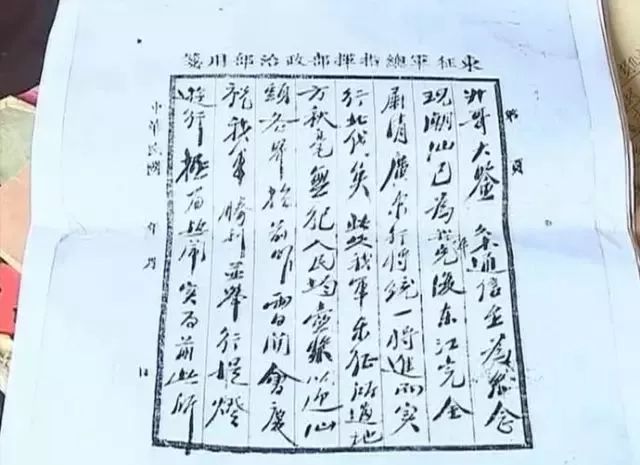 東征軍總指揮部政治部用箋
第 頁
哥大鑒 通信至為念
現潮汕已為我軍克復東江完全
肅清廣東行將統一將進而實
行北伐矣此次我軍東征所過地
方秋毫無犯人民均壺漿以迎汕
頭各界於前昨兩日開會慶
祝我軍勝利並舉行提燈
遊行極為熱鬧實為前此所
中華民國 年 月 日